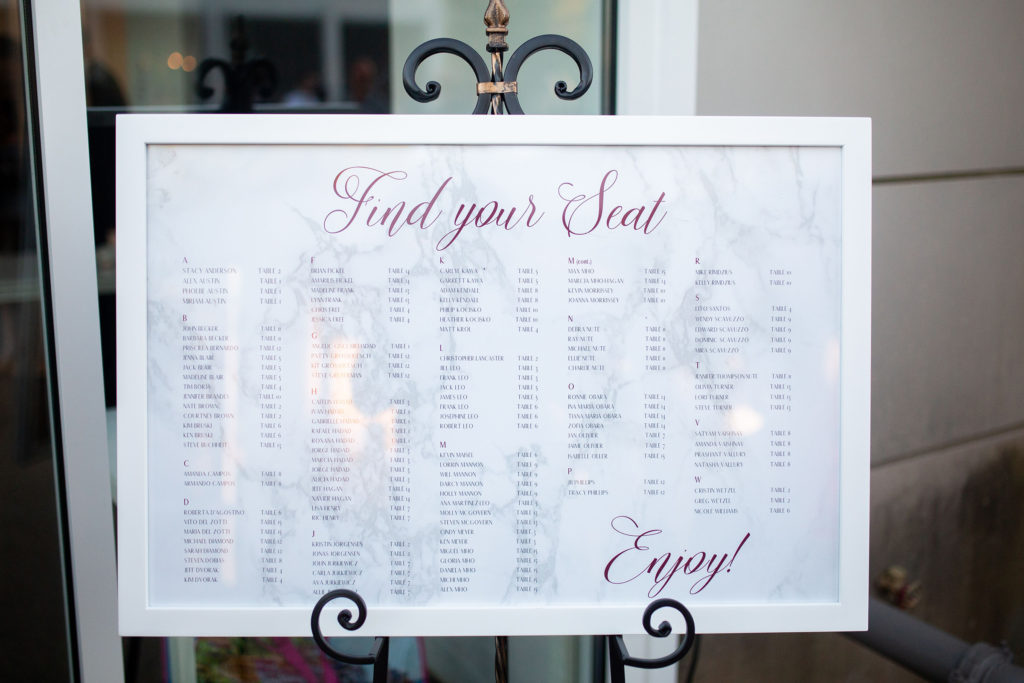 Find your Seat
A
STACY ANDERSON TABLE 2
ALEX AUSTIN TABLE 1
PHOEBE AUSTIN TABLE 1
MIRIAM AUSTIN TABLE 1
B
JOHN BECKER TABLE 11
BARBARA BECKER TABLE 11
PRISCILLA BERNARDO TABLE 12
JENNA BLAIR TABLE 5
JACK BLAIR TABLE 5
MADELINE BLAIR TABLE 5
TIM BORJA TABLE
JENNIFER BRANDES TABLE 10
NATE BROWN TABLE 2
COURTNEY BROWN TABLE 2
KIM BRUSKE TABLE 6
KEN BRUSKE TABLE 6
STEVE BUCHHEIT TABLE 13
C
AMANDA CAMPOS TABLE
ARMANDO CAMPOS TABLE
D
ROBERTA D'AGOSTINO TABLE 8
VITO DEL ZOTTI TABLE 15
MARIA DEL ZOTTI TABLE 15
MICHAEL DIAMOND TABLE 12
SARAH DIAMOND TABLE 12
STEVEN DOBIAS TABLE 8
JEFF DVORAK TABLE 4
KIM DVORAK TABLE 4
F
BRIAN FICKEL TABLE 14
AMARILIS FICKEL TABLE 14
MADELINE FRANK TABLE
LYAN FRANK TABLE
CHRIS FREE TABLE 4
JESSICA FREE TABLE 4
G
TABLE 1
PATTY TABLE 12
KIT TABLE 12
STEVE
H
CAITLIN HADAD TABLE
IVAN HADAD TABLE
GABRIELLE HADAD TABLE
RAFAEL HADAD TABLE
ROXANA HADAD TABLE
JORGE HADAD TABLE
MARCIA HADAD TABLE
JORGE HADAD TABLE
ALICIA HADAD TABLE
JEFF HAGAN TABLE 14
XAVIER HAGAN TABLE
LISA HENRY TABLE 7
RIC HENRY TABLE 7
J
KRISTIN JORGENSEN TABLE 2
JONAS JORGENSEN TABLE 2
JOHN JURKIEWICZ TABLE 7
CARLA JURKIEWICZ TABLE 7
AVA JURKIEWICZ TABLE 7
TABLE 7
K
CARLYE KAWA TABLE 5
GARRETT KAWA TABLE 5
ADAM KENDALL TABLE 8
KELLY KENDALL TABLE 8
PHILIP KOCISKO TABLE 10
HEATHER KOCISKO TABLE 10
MATT KROL TABLE 4
L
CHRISTOPHER LANCASTER TABLE 2
JILL LEO TABLE 3
FRANK LEO TABLE 3
JACK LEO TABLE 3
JAMES LEO TABLE 3
FRANK LEO TABLE 6
JOSEPHINE LEO TABLE 6
ROBERT LEO TABLE 6
M
KEVIN MAISEL TABLE 6
LORRIN MANNON TABLE
WILL MANNON TABLE
DARCY MANNON TABLE
HOLLY MANNON TABLE
ANA MARTINEZ LEO TABLE 3
MOLLY MC GOVERN TABLE
STEVEN MCGOVERN TABLE
CINDY MEYER TABLE
KEN MEYER TABLE
MIGUEL MHO TABLE 15
GLORIA MHO TABLE 15
DANIELA MHO TABLE 15
MICHI MHO TABLE 15
ALEX MHO TABLE 15
M (cont.)
MAX MHO TABLE 15
MARCIA MHO-HAGAN TABLE 14
KEVIN MORRISSEY TABLE 10
JOANNA MORRISSEY TABLE 10
N
DEBRA NUTE TABLE 11
RAY NUTE TABLE 11
MICHAEL NUTE TABLE 11
ELLIE NUTE TABLE 11
CHARLIE NUTE TABLE 11
O
RONNIE OBARA TABLE 14
INA MARIA OBARA TABLE 14
TIANA MARIA OBARA TABLE 14
ZOFIA OBARA TABLE 14
JAN OLIVIER TABLE 7
JAIME OLIVIER TABLE 7
ISABELLE OLLER TABLE 15
P
JB PHILLIPS TABLE 12
TRACY PHILLIPS TABLE 12
R
MIKE RIMDZIUS TABLE 10
KELLY RIMDZIUS TABLE 10
S
LITO SANTOS TABLE 4
WENDY SCAVUZZO TABLE 9
EDWARD SCAVUZZO TABLE 9
DOMINIC SCAVUZZO TABLE 9
MIRA SCAVUZZO TABLE 9
T
JENIFER THOMPSON NUTE TABLE 11
OLIVIA TURNER TABLE 13
LORI TURNER TABLE 13
STEVE TURNER TABLE 13
V
SATYAM VAISHNAV TABLE 8
AMANDA VAISHNAV TABLE 8
PRASHANT VALLURY TABLE 8
NATASHA VALLURY TABLE 8
W
CRISTIN WETZEL TABLE 2
GREG WETZEL TABLE 2
NICOLE WILLIAMS TABLE 6
Enjoy!